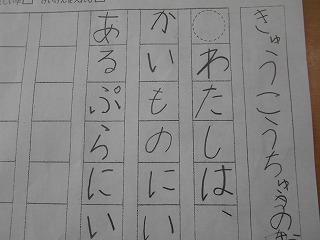 きゅうこうちゅうのぎ
わたしは、
かいものにい
あるぷらにい